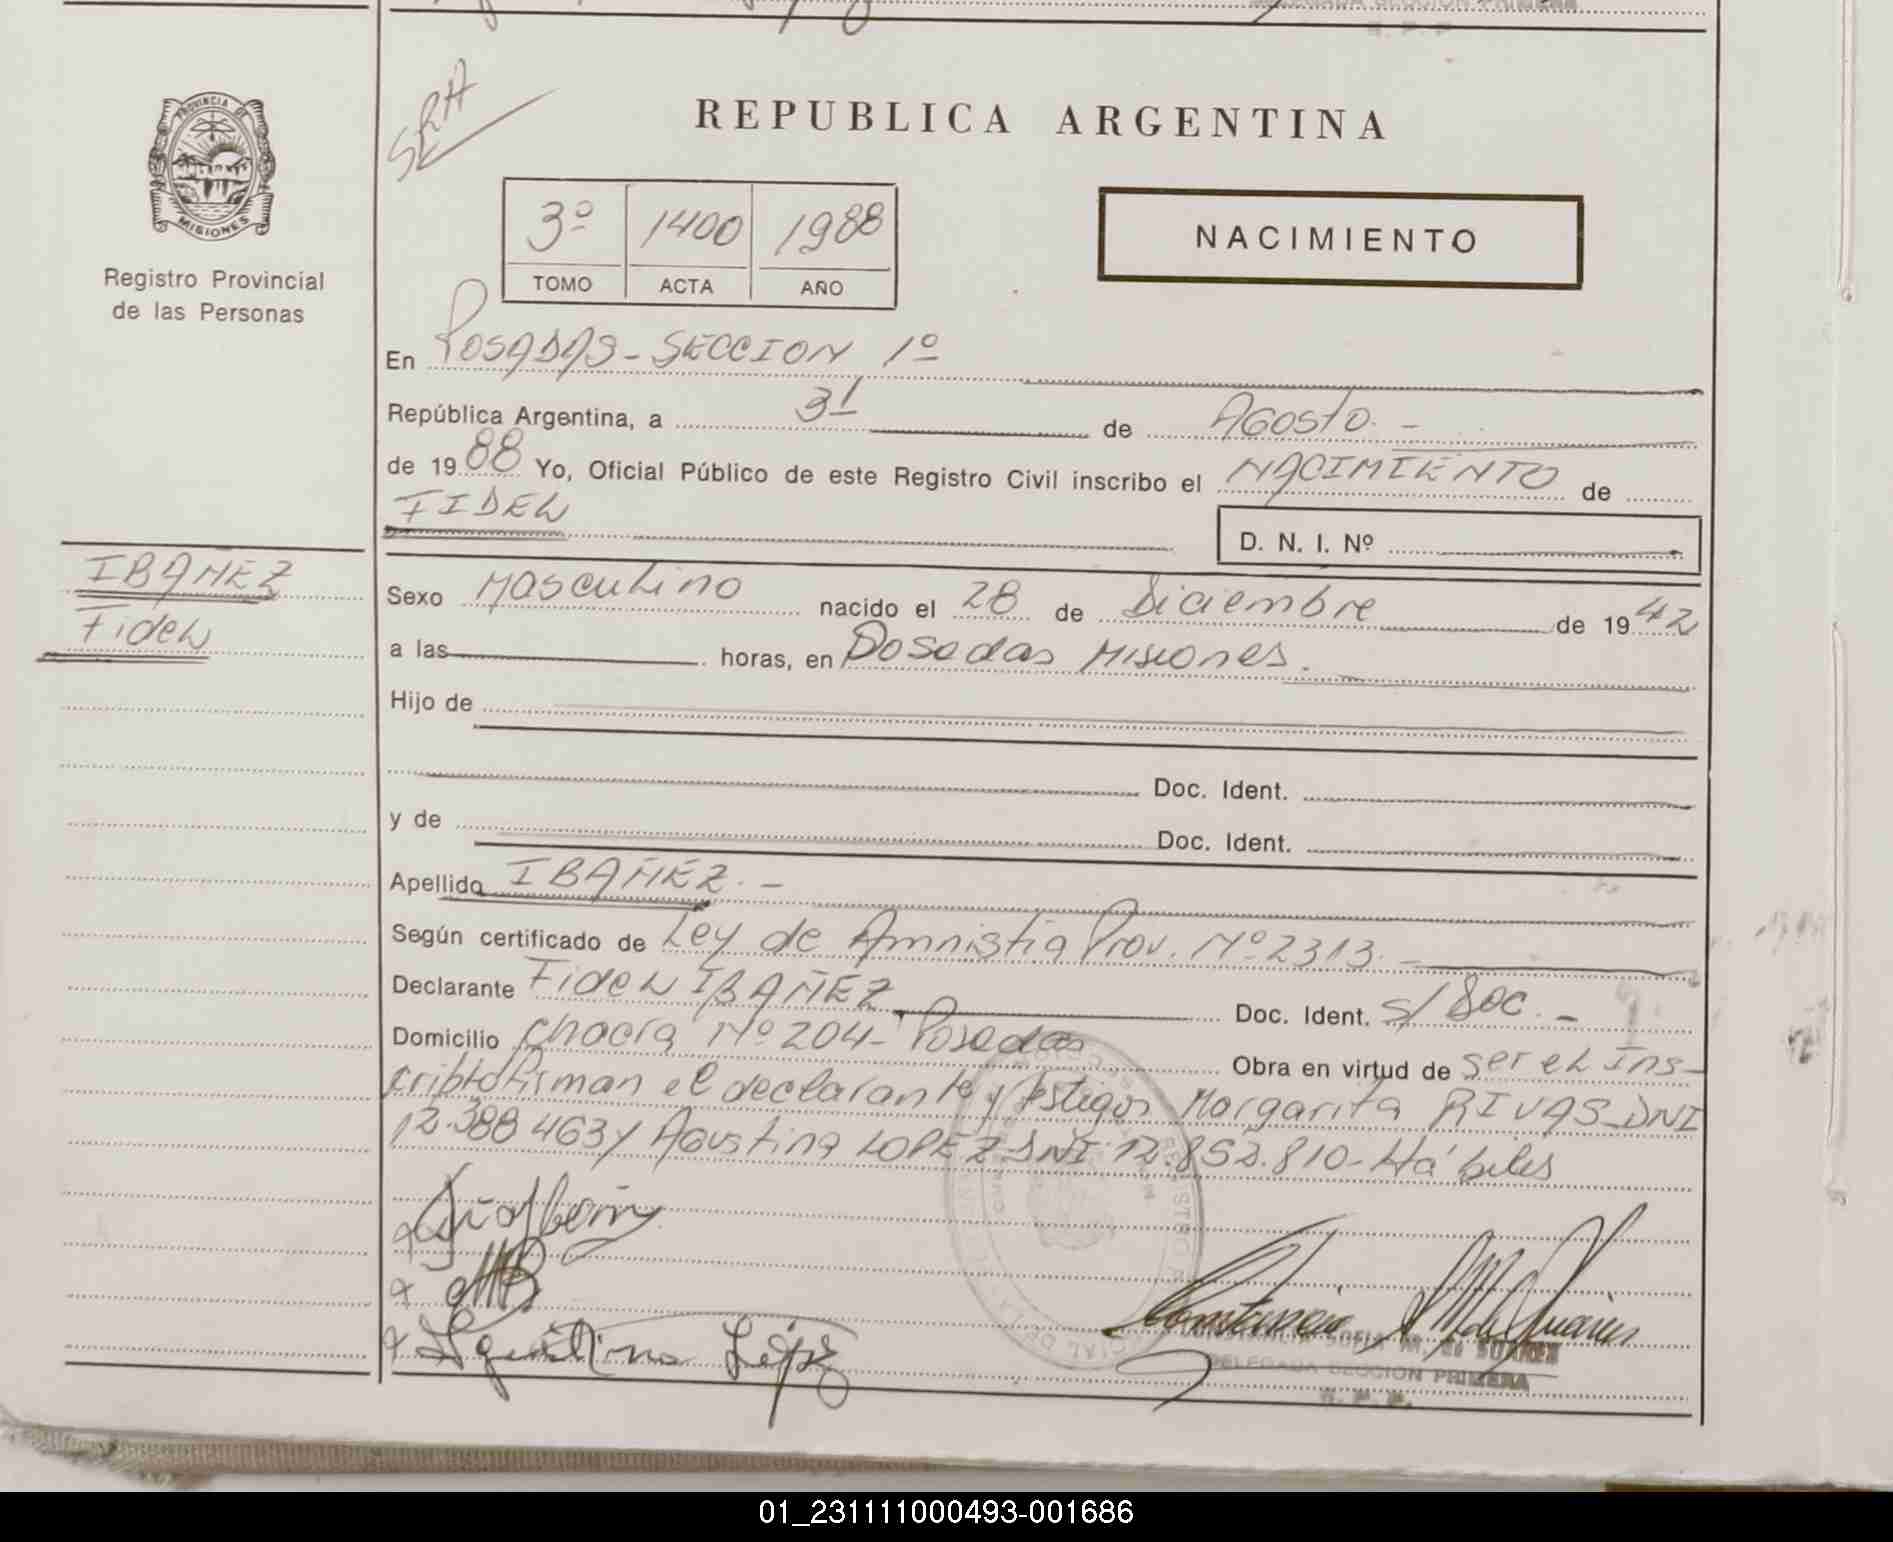 DELEGADA SECCION PRIMERA
R. P. P.
PROVINCIA DE
MISIONES
Registro Provincial
de las Personas
REPUBLICA ARGENTINA
3º 1400 1988
TOMO ACTA AÑO
NACIMIENTO
En POSADAS - SECCION 1º
República Argentina, a 31 de AGOSTO. -
de 1988 Yo, Oficial Público de este Registro Civil inscribo el NACIMIENTO de
FIDEL
D. N. I. Nº
IBAÑEZ
Fidel
Sexo Masculino nacido el 28 de Diciembre de 1942
a las horas, en Posadas Misiones.
Hijo de
Doc. Ident.
y de
Doc. Ident.
Apellido IBAÑEZ. -
Según certificado de Ley de Amnistia Prov. Nº 2313. -
Declarante Fidel IBAÑEZ Doc. Ident. s/ Doc. -
Domicilio chacra Nº 204 - Posadas Obra en virtud de ser el Ins-
cripto firman el declarante y testigos Margarita RIVAS DNI
12.388463 y Agustina LOPEZ DNI 12.852.810 - Hábiles
Agustina López
SOFIA M. de SUAREZ
DELEGADA SECCION PRIMERA
R. P. P.
01_231111000493-001686